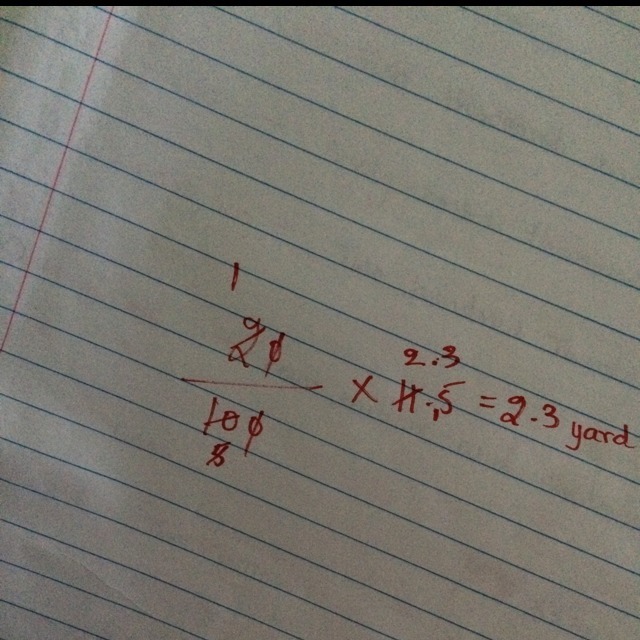 1
20
2.3
100 × 11.5 = 2.3 yard
5